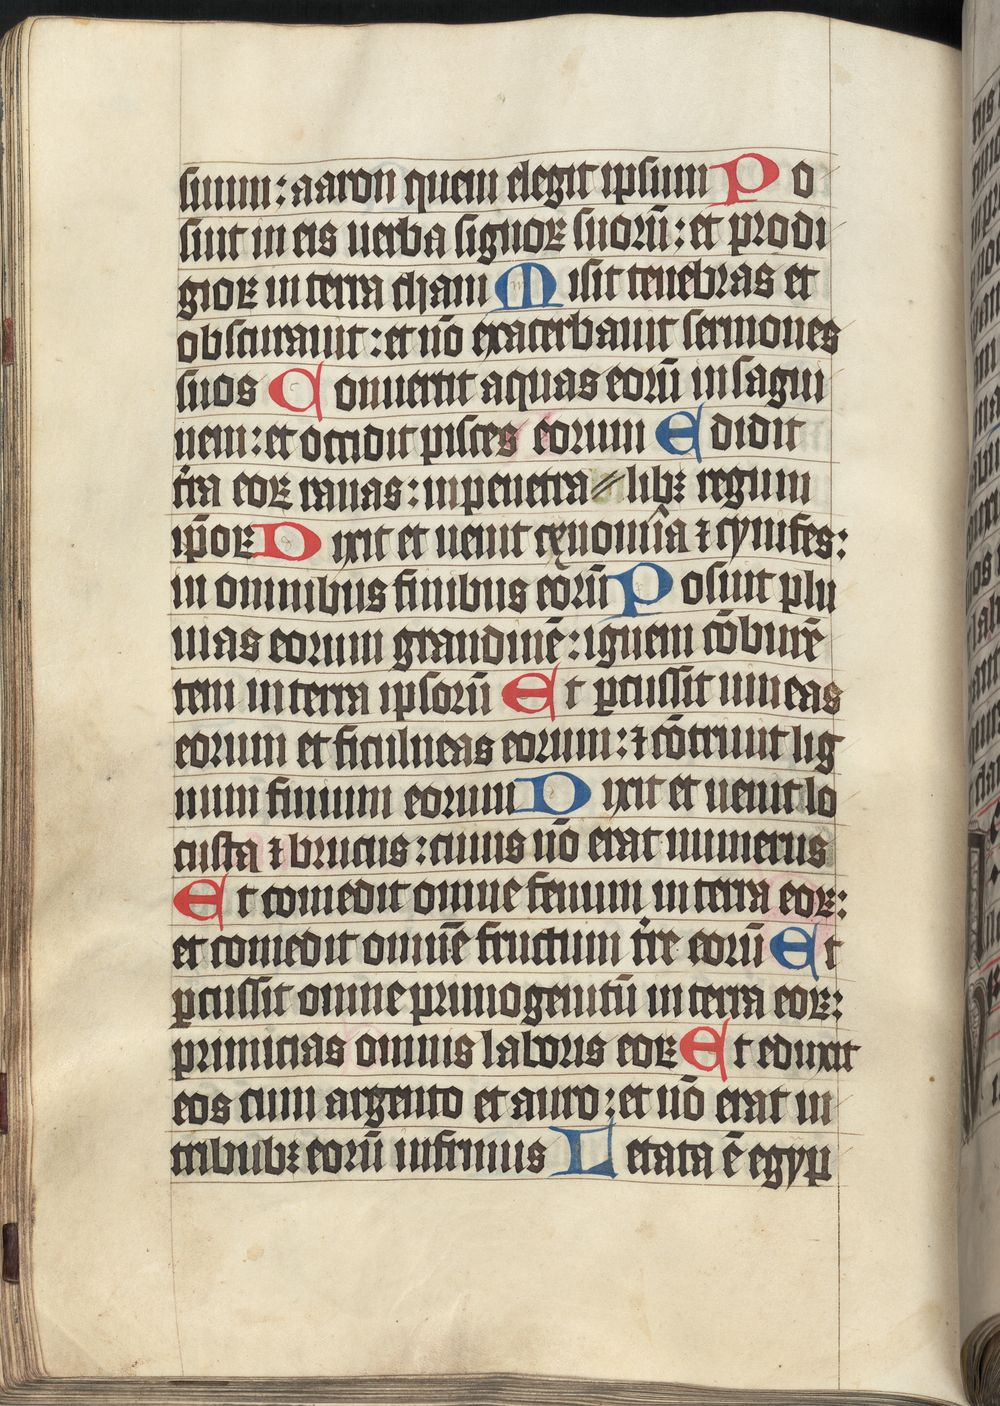 suum: aaron quem elegit ipsum Po
suit in eis uerba signoꝝ suorū: et prodi
gioꝝ in terra cham Misit tenebras et
obscurauit: et nō exacerbauit sermones
suos Conuertit aquas eorū in sagui
nem: et occidit pisces eorum Edidit
tr̄a eoꝝ ranas: in penetralibꝫ regum
ip̄oꝝ Dixit et uenit cynomīa ⁊ cynifes:
in omnibus finibus eorū Posuit plu
uias eorum grandinē: ignem cōburē
tem in terra ipsorū Et ꝑcussit uineas
eorum et ficulneas eorum: ⁊ cōtriuit lig
num finium eorum Dixit et uenit lo
custa ⁊ brucus: cuius nō erat numerus
Et comedit omne fenum in terra eoꝝ:
et comedit omnē fructum tr̄e eorū Et
ꝑcussit omne primogenitū in terra eoꝝ:
primicias omnis laboris eoꝝ Et eduxit
eos cum argento et auro: et nō erat in
tribubꝫ eorū infirmus Letata ē egyp